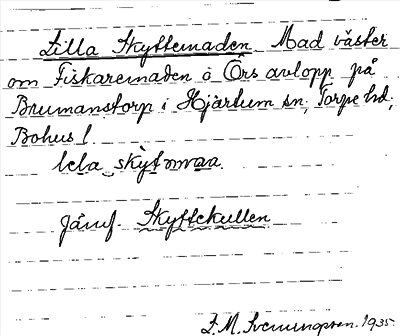 Lilla Skyttemaden. Mad väster
om Fiskaremaden å Örs avlopp på
Brumanstorp i Hjärtum sn, Torpe hd,
Bohus l.
lela skytmaa.
Jämf. Skyttekullen
1935